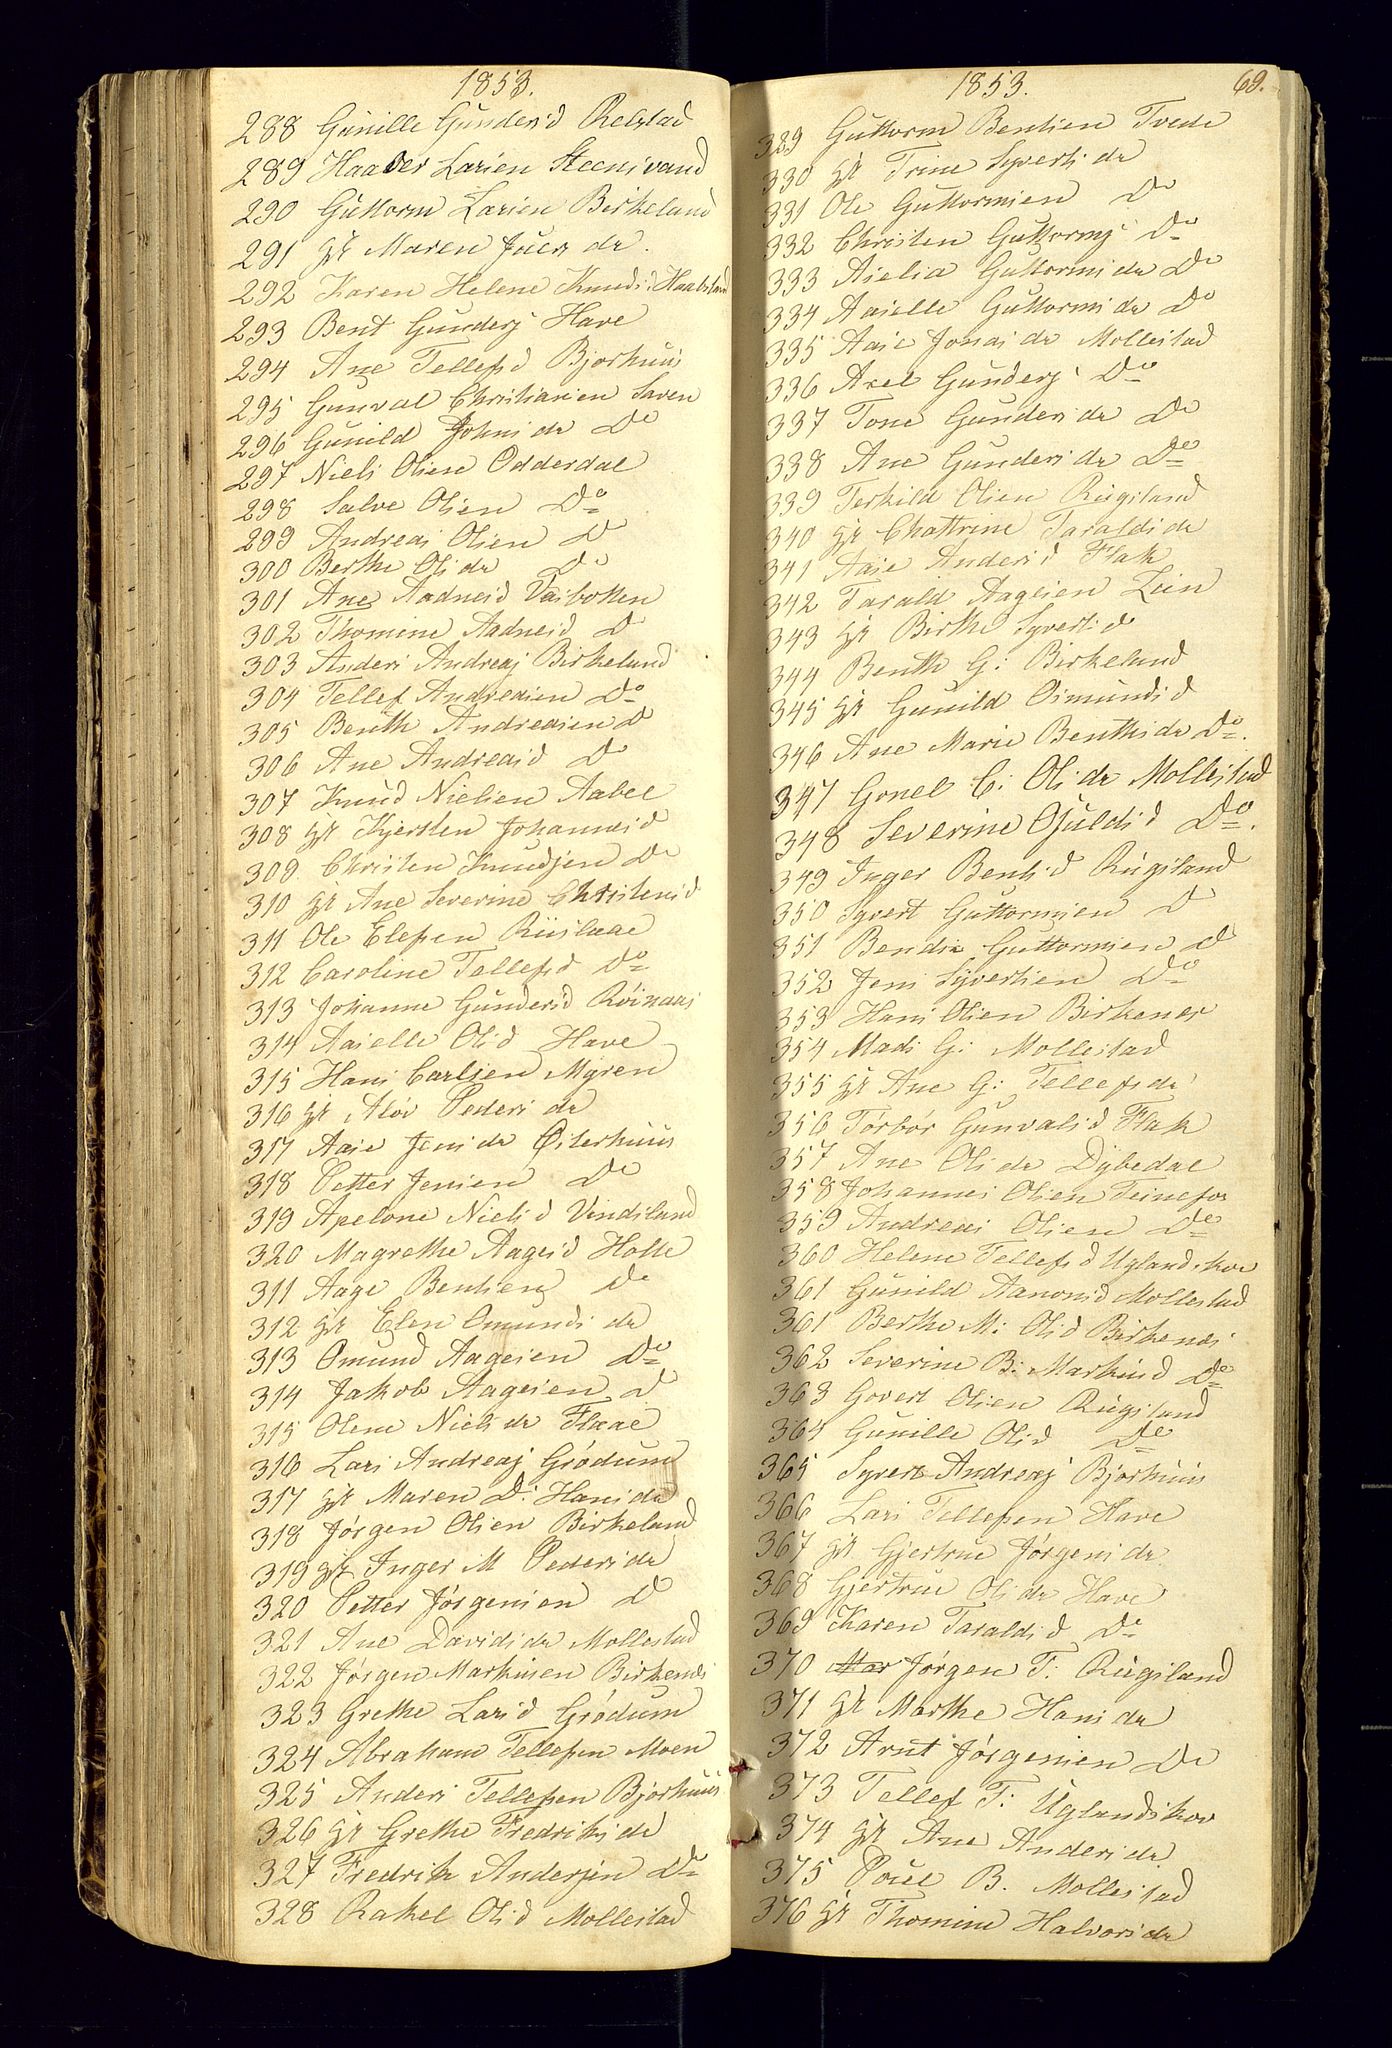 1853.
288 Gunille Gundersd Retstad
289 Haaver Larsen Steensvand
290 Guttorm Larsen Birkeland
291 Hr Maren Juers dr.
292 Karen Helene Knudsd Haabstad
293 Bent Gundersj Have
294 Ane Tellefsd Bjorhuus
295 Gunval Christiansen Saren
296 Gunild Johnsdr Do
297 Niels Olsen Odderdal
298 Salve Olsen Do
299 Andreas Olsen Do
300 Berthe Olsdr Do
301 Ane Aadnesd Vasbotten
302 Thomine Aadnesd Do
303 Anders Andreasj Birkeland
304 Tellef Andreasen Do
305 Benth Andreasen Do
306 Ane Andreasd Do
307 Knud Nielsen Aabel
308 Hr Kjersten Johannesd
309. Christen Knudsen Do
310 Hr Ane Severine Christensd
311 Ole Elefsen Riislaae
312 Caroline Tellefsd Do
313 Johanne Gundersd Röinaas
314 Aasille Olsd Have
315 Hans Carlsen Myren
316 Hr Alöv Peders dr
317 Aase Jensdr Østerhuus
318 Petter Jensen Do
319 Apelone Nielsd Vindsland
320 Magrethe Aagesd Holte
311 Aage Bentsen Do
312 Hr Elen Omundsdr
313 Omund Aagesen Do
314 Jakob Aagesen Do
315 Olene Nielsdr Flaae
316 Lars Andreasj Grödum
317 Hr Maren D: Hansdr
318 Jörgen Olsen Birkeland
319 Hr Inger M Pedersdr
320 Petter Jörgensen Do
321 Ane Davidsdr Mollestad
322 Jörgen Markusen Birkenes
323 Grethe Larsd Grödum
324 Abraham Tellefsen Moen
325 Anders Tellefsen Bjorhuus
326 Hr Grethe Fredriksdr
327 Fredrik Andersen Do
328 Rakel Olsd Mollestad
1853. 69.
329 Guttorm Bentsen Tvede
330 Hr Trine Syvertsdr
331 Ole Guttormsen Do
332 Christen Guttormsj Do
333 Aslia Guttormsdr Do
334 Aasille Guttormsdr Do
335 Aase Jonasdr Mollestad
336 Axel Gundersj Do
337 Tone Gundersdr Do
338 Ane Gundersdr Do
339 Terkild Olsen Rugsland
340 Hr Chattrine Taraldsdr
341 Aase Andersd Flak
342 Tarald Aagesen Lien
343 Hr Birthe Syvertsd
344 Benth G: Birkeland
345 Hr Gunild Osmundsd
346 Ane Marie Benthsdr Do.
347 Gonel C: Olsdr Mollestad
348 Severine Ojuldsd Do.
349 Inger Bentsd Rugsland
350 Syvert Guttormsen Do
351 Bendix Guttormsen Do
352 Jens Syvertsen Do
353 Hans Olsen Birkenes
354 Mads G: Mollestad
355 Hr Ane G: Tellefsdr
356 Törbör Gunvalsd Flak
357 Ane Olsdr Dybedal
358 Johannes Olsen Teinefos
359 Andreas Olsen Do
360 Helene Tellefsd Uglandskov
361 Gunild Aanonsd Mollestad
361 Berthe M: Olsd Birkenes
362 Severine B: Markusd Do
363 Govert Olsen Rugsland
364 Gunille Olsd Do
365 Syvert Andreasj Bjorhuus
366 Lars Tellefsen Have
367 Hr Gjertrue Jörgensdr
368 Gjertrue Olsdr Have
369 Karen Taraldsd Do
370 Mar Jörgen T: Rugsland
371 Hr Marthe Hansdr
372 Arnt Jörgensen Do
373 Tellef T: Uglandskov
374 Hr Ane Andersdr
375 Poul B. Mollestad
376 Hr Thomine Halvorsdr